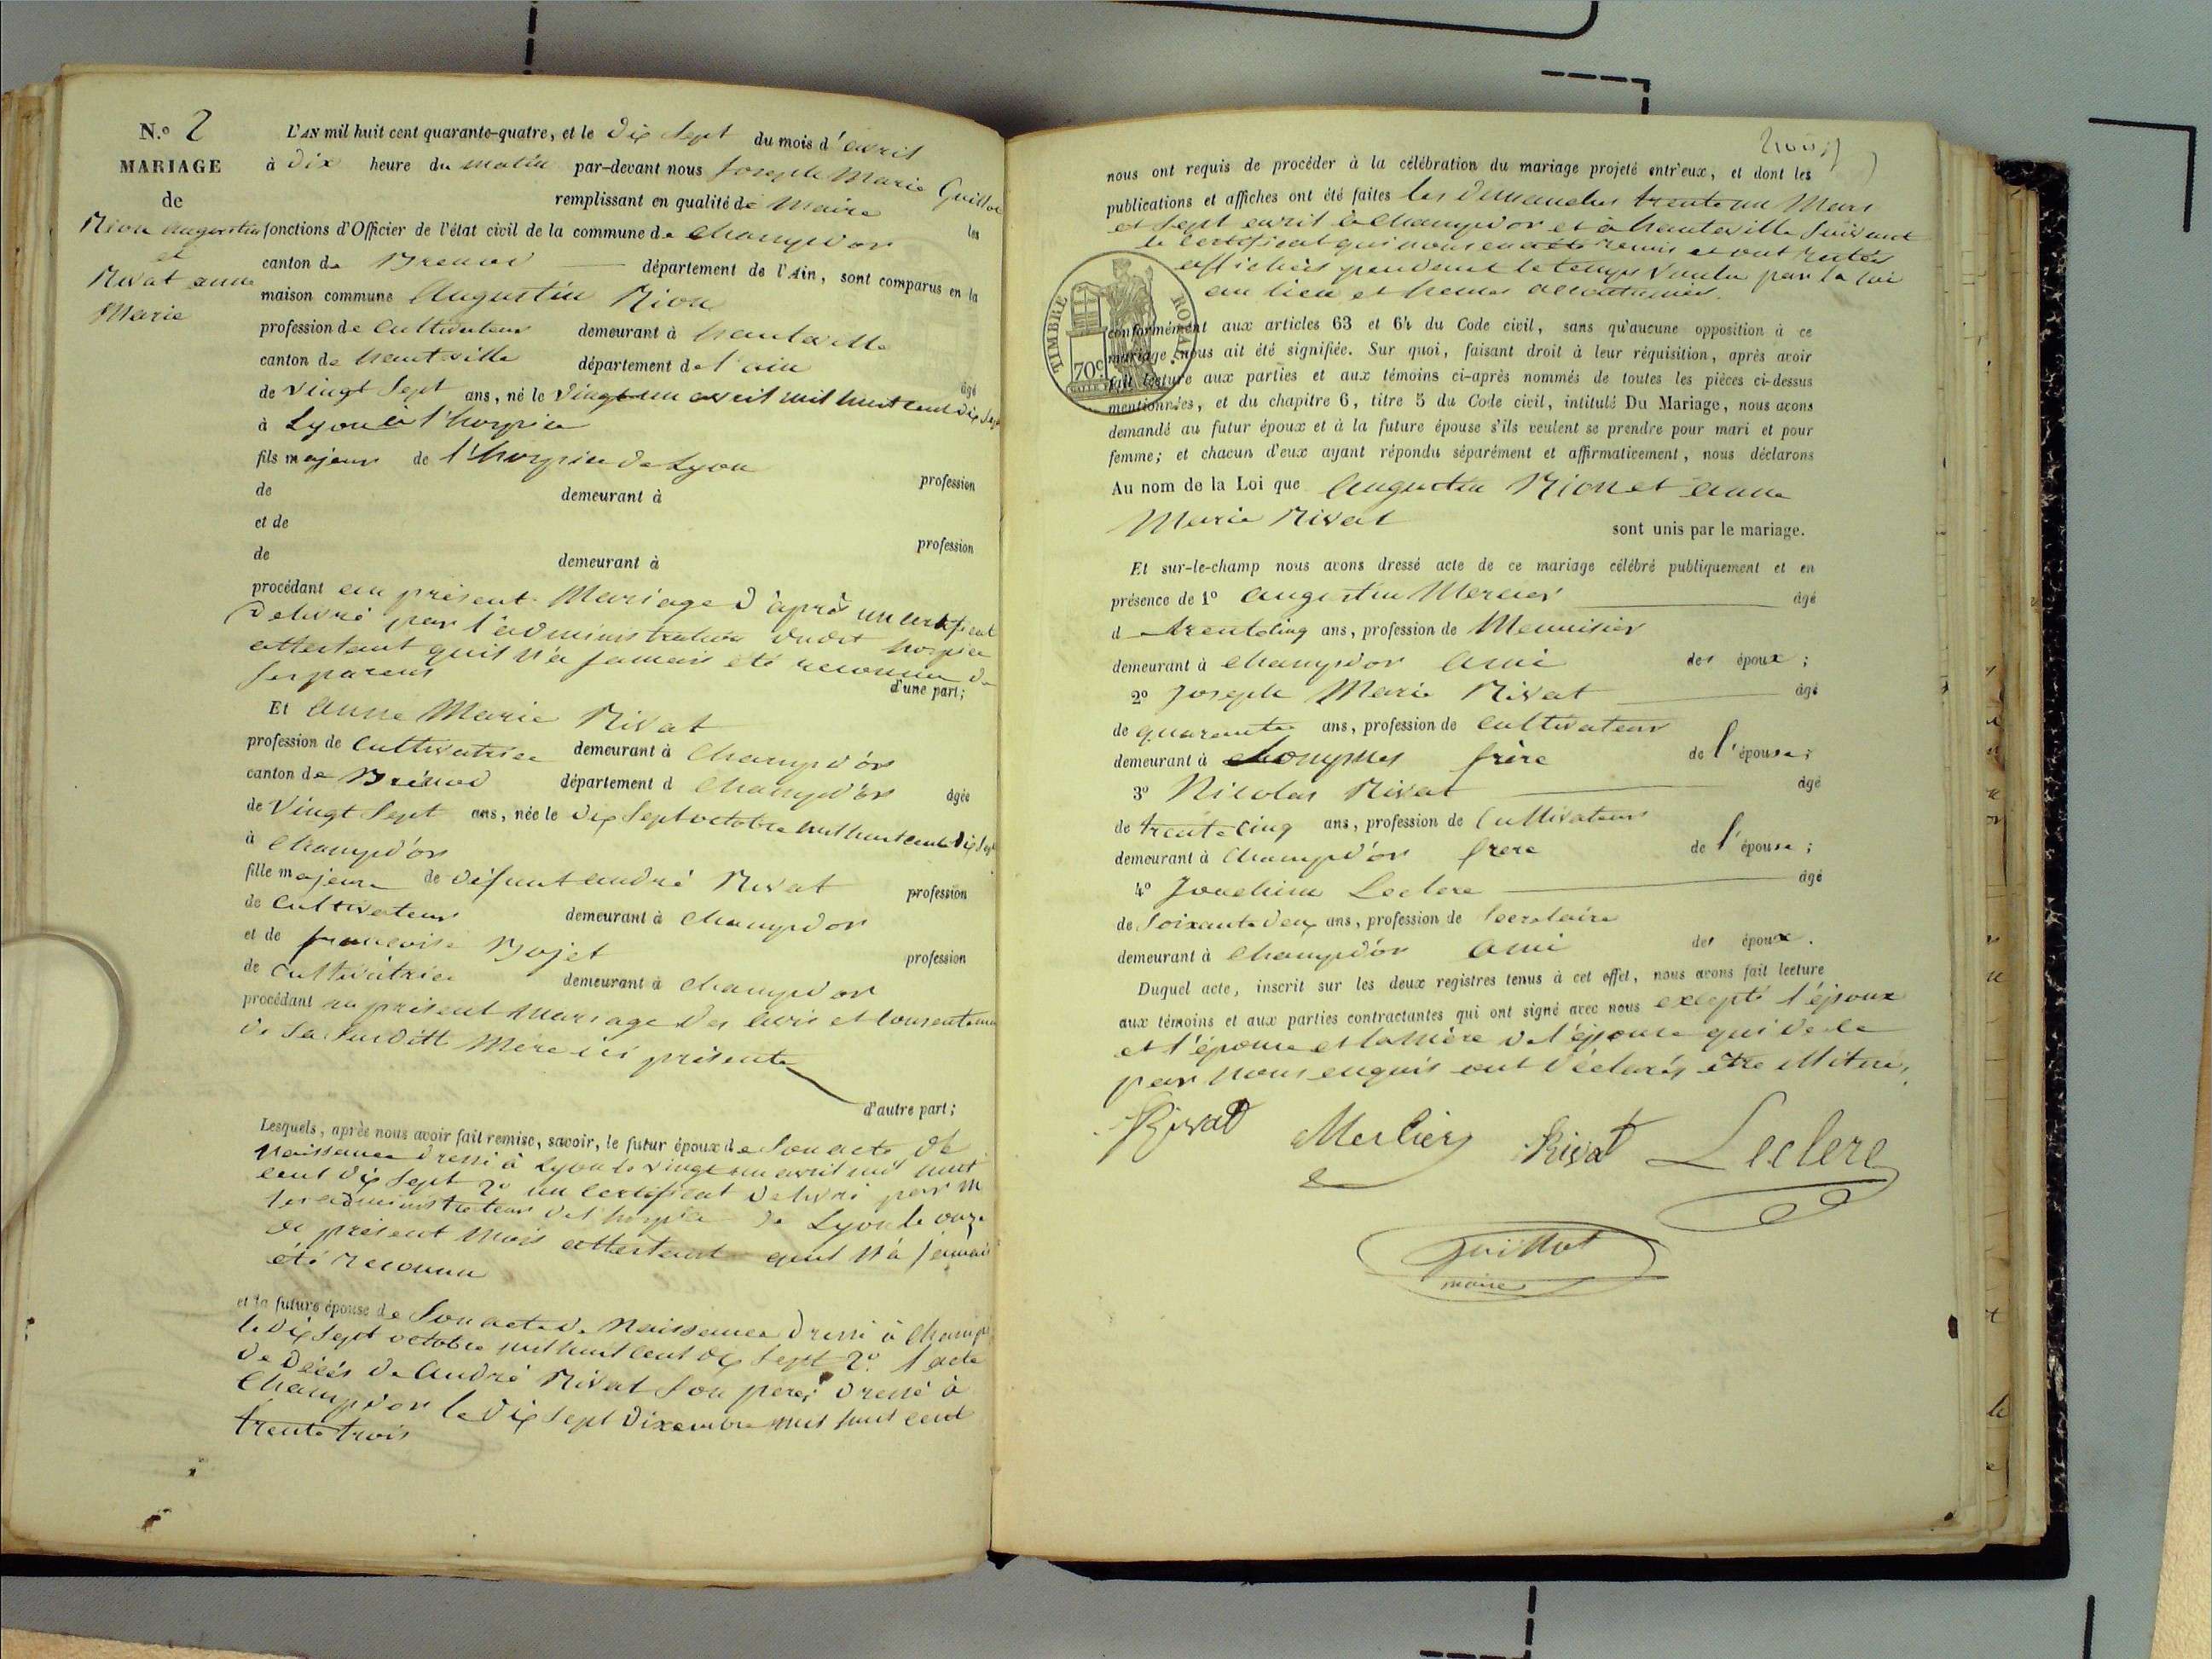 N.o 2
MARIAGE
de
Rion augustin
et
Rivat anne
Marie
L'AN mil huit cent quarante-quatre, et le dix Sept du mois d'avril
à dix heure du matin par-devant nous Joseph Marie Guillot
remplissant en qualité de Maire les
fonctions d'Officier de l'état civil de la commune de champdor
canton de Brenod département de l'Ain, sont comparus en la
maison commune Augustin Rion
profession de Cultivateur demeurant à hauteville
canton de hautville département de l'ain âgé
de vingt Sept ans, né le vingt un avril mil huit cent dix Sept
à Lyon à l'hospice
fils majeur de l'hospice de Lyon profession
de demeurant à
et de profession
de demeurant à
procédant au présent Mariage d'après un certificat
delivré par l'administration dudit hospice
attestant quil n'a jamais été reconnu de
ses parens d'une part;
Et Anne Marie Rivat
profession de Cultivatrice demeurant à Champd'or
canton de Brénod département d Champd'or âgée
de Vingt Sept ans, née le dix Sept octobre mil huit cent dix Sept
à Champd'or
fille majeure de défunt andré Rivat profession
de Cultivateur demeurant à Champdor
et de francoise Bojet profession
de Cultivatrice demeurant à Champdor
procédant au présent mariage des avis et consentement
de Sa Susditte Mère ici présente
d'autre part;
Lesquels, après nous avoir fait remise, savoir, le futur époux de Son acte de
Naissance dressé à Lyon le vingt un avril mil huit
cent dix Sept 2o un Certificat delivré par M
les administrateur de l'hospice de Lyon le onze
du présent mois attestant quil n'à jamais
été reconnu
et la future épouse de Son acte de Naissance dressé à Champ
le dix Sept octobre mil huit cent dix Sept 2o l'acte
de décés de André Rivat Son pere, dressé à
Champdor le dix Sept dixembre mil huit cent
trente trois
nous ont requis de procéder à la célébration du mariage projeté entr'eux, et dont les
publications et affiches ont été faites les dimanches trente un Mars
et Sept avril à Champdor et à hauteville Suivant
le certificat qui nous en a été remis et ont restés
affichés pendant le temps voulu par la loi
au lieu et heures accoutumés.
TIMBRE ROYAL
70c
conformément aux articles 63 et 64 du Code civil, sans qu'aucune opposition à ce
mariage nous ait été signifiée. Sur quoi, faisant droit à leur réquisition, après avoir
fait lecture aux parties et aux témoins ci-après nommés de toutes les pièces ci-dessus
mentionnées, et du chapitre 6, titre 5 du Code civil, intitulé Du Mariage, nous avons
demandé au futur époux et à la future épouse s'ils veulent se prendre pour mari et pour
femme; et chacun d'eux ayant répondu séparément et affirmativement, nous déclarons
Au nom de la Loi que Augustin Rion et anne
Marie Rivat sont unis par le mariage.
Et sur-le-champ nous avons dressé acte de ce mariage célébré publiquement et en
présence de 1o augustin Mercier âgé
d trente cinq ans, profession de Menuisier
demeurant à Champdor ami des époux;
2o Joseph Marie Rivat âgé
de quarante ans, profession de Cultivateur
demeurant à frère de l'épouse;
3o Nicolas Rivat âgé
de trente cinq ans, profession de Cultivateur
demeurant à Champd'or frere de l'épouse;
4o Joachim Leclerc âgé
de Soixante deux ans, profession de Secretaire
demeurant à Champd'or ami des époux.
Duquel acte, inscrit sur les deux registres tenus à cet effet, nous avons fait lecture
aux témoins et aux parties contractantes qui ont signé avec nous excepté l'époux
et l'épouse et la Mère de l'épouse qui de ce
par nous enquis ont déclarés être illitrés,
Rivat Mercier Rivat Leclerc
Guillot
maire